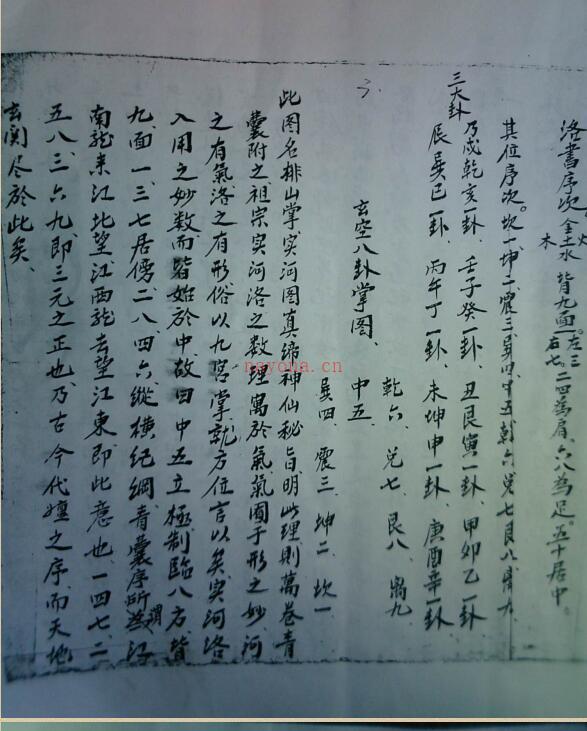 洛書序次 金土水火木 皆九面。左三右七。二四為肩、六八為足。五十居中。
其位序次。坎一坤二震三巽四中五乾六兌七艮八離九
三大卦 乃戌乾亥一卦、壬子癸一卦、丑艮寅一卦、甲卯乙一卦
辰巽巳一卦、丙午丁一卦、未坤申一卦、庚酉辛一卦
乾六、兌七、艮八、離九
中五、
巽四、震三、坤二、坎一
玄空八卦掌图、
此图名排山掌、实河图真缔神仙秘旨、明此理則萬卷青
囊附之祖宗实河洛之数理寓於氣氣囿于形之妙河
之有氣洛之有形俗以九宮掌就方位言以矣实河洛
入用之妙数而皆始於中故曰中五立極制臨八方皆
九、面一、三七居傍、二八、四六、縱横纪綱、青囊序所謂江
南龍来江北望、江西龍去望江東即此意也、一四七、二
五八、三六九、即三元之正也、乃古今代嬗之序、而天地
玄関尽於此矣、
nayona.cn